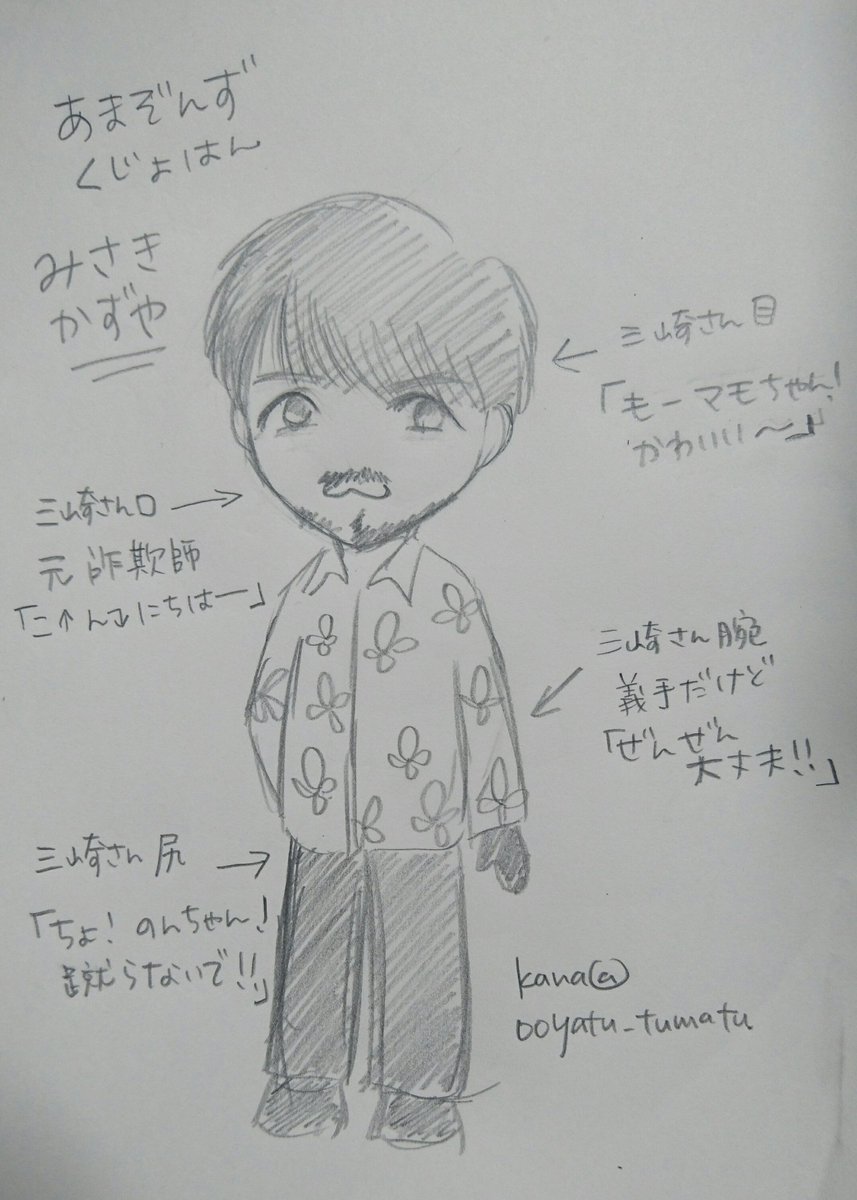 あまぞんず
くじょはん
みさき
かずや
三崎さん目
「もーマモちゃん!
かわいい〜」
三崎さん口
元詐欺師
「こ↑んにちはー」
三崎さん腕
義手だけど
「ぜんぜん
大丈夫!!」
三崎さん尻
「ちょ!のんちゃん!
蹴らないで!!」
kana@
ooyatu_tumatu